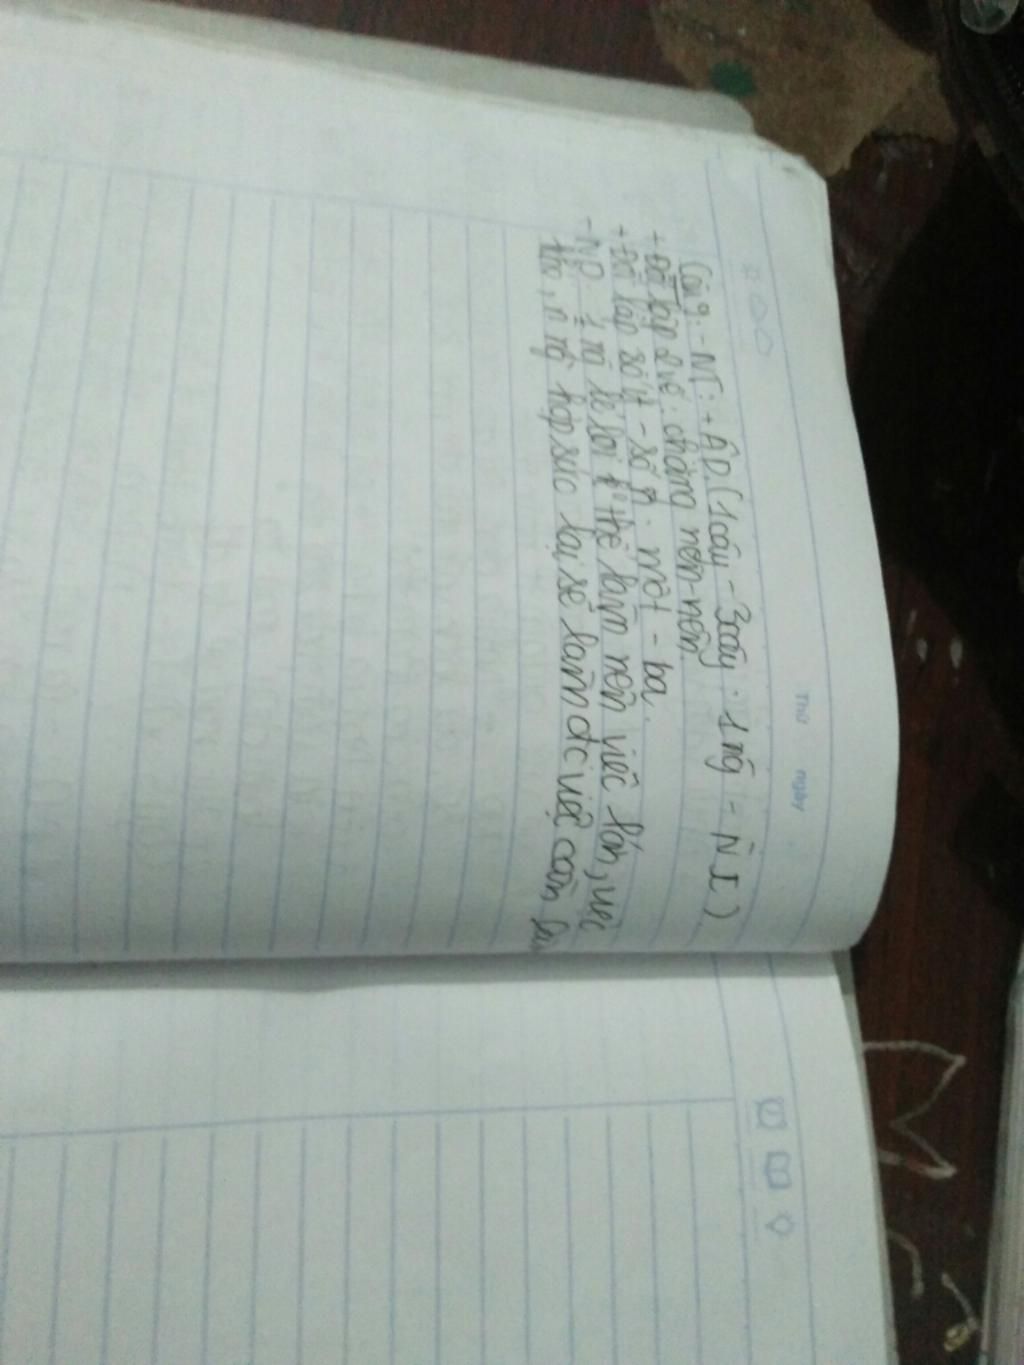 Thứ ngày
Câu 9: - NT: + ÂD. (1 cây - 3 cây. 1 ng - N I)
+ Đối lập 2 vế: chẳng nên - nên.
+ Đối lập số ít - số n. một - ba.
- ND 1 ng lẻ loi k thể làm nên việc lớn, việc
khó, n ng hợp sức lại sẽ làm đc việc cần làm